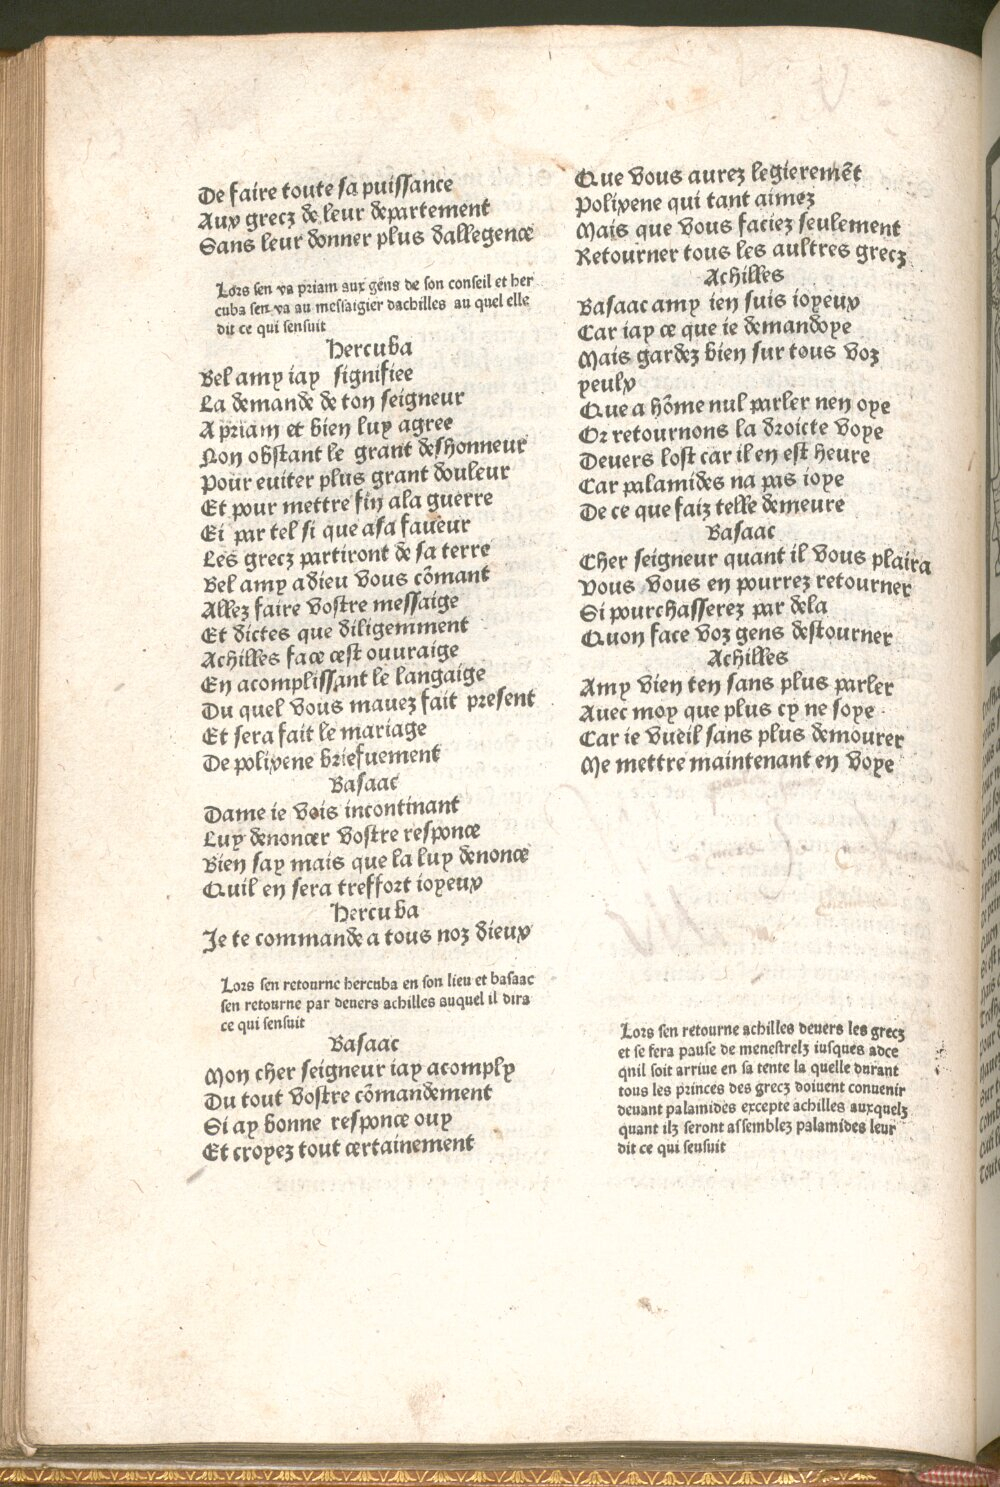 De faire toute sa puissance
Aux grecz de leur departement
Sans leur donner plus dallegence
Lors sen va priam aux gens de son conseil et her
cuba sen va au messaigier dachilles au quel elle
dit ce qui sensuit
Hercuba
Bel amy iay signifiee
La demande de ton seigneur
A priam et bien luy agree
Non obstant le grant deshonneur
Pour euiter plus grant douleur
Et pour mettre fin ala guerre
Ei par tel si que asa faueur
Les grecz partiront de sa terre
Bel amy adieu vous cõmant
Allez faire vostre messaige
Et dictes que diligemment
Achilles face cest ouuraige
En acomplissant le langaige
Du quel vous mauez fait present
Et sera fait le mariage
De polixene briefuement
Basaac
Dame ie vois incontinant
Luy denoncer vostre responce
Bien say mais que la luy denonce
Quil en sera treffort ioyeux
Hercuba
Je te commande a tous noz dieux
Lors sen retourne hercuba en son lieu et basaac
sen retourne par deuers achilles auquel il dira
ce qui sensuit
Basaac
Mon cher seigneur iay acomply
Du tout vostre cõmandement
Si ay bonne responce ouy
Et croyez tout certainement
Que vous aurez legieremẽt
Polixene qui tant aimez
Mais que vous faciez seulement
Retourner tous les aultres grecz
Achilles
Basaac amy ien suis ioyeux
Car iay ce que ie demandoye
Mais gardez bien sur tous voz
yeulx
Que a hõme nul parler nen oye
Or retournons la droicte voye
Deuers lost car il en est heure
Car palamides na pas ioye
De ce que faiz telle demeure
Basaac
Cher seigneur quant il vous plaira
Vous vous en pourrez retourner
Si pourchasserez par dela
Quon face voz gens destourner
Achilles
Amy vien ten sans plus parler
Auec moy que plus cy ne soye
Car ie vueil sans plus demourer
Me mettre maintenant en voye
Lors sen retourne achilles deuers les grecz
et se fera pause de menestrelz iusques adce
qnil soit arriue en sa tente la quelle durant
tous les princes des grecz doiuent conuenir
deuant palamides excepte achilles auxquelz
quant ilz seront assemblez palamides leur
dit ce qui sensuit